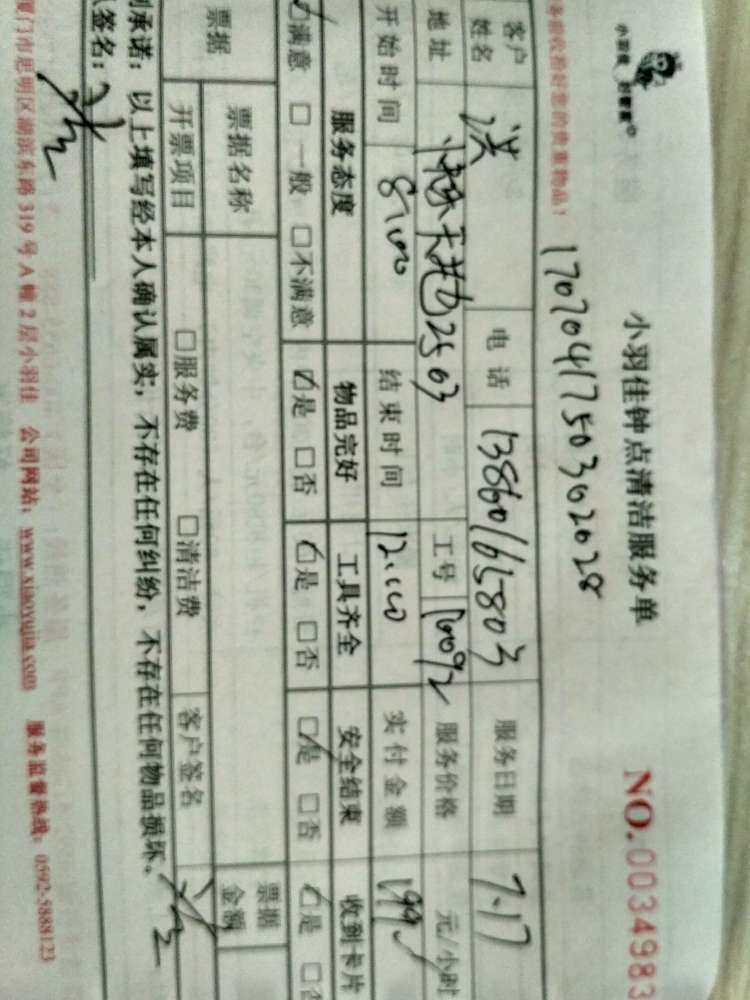 小羽佳 好管家
小羽佳钟点清洁服务单
NO.0034983
收拾好您的贵重物品!
1707041750302028
客户姓名 洪 电话 13860165803 服务日期 7.17
地址 2503 工号 服务价格 元/小时
开始时间 8:00 结束时间 12:00 实付金额 199
服务态度 物品完好 工具齐全 安全结束 收到卡片
☑满意 □一般 □不满意 ☑是 □否 ☑是 □否 ☑是 □否 ☑是 □否
票据 票据名称 票据金额
开票项目 □服务费 □清洁费 客户签名
承诺:以上填写经本人确认属实,不存在任何纠纷,不存在任何物品损坏。
签名:
厦门市思明区湖滨东路319号A幢2层小羽佳 公司网站:www.xiaoyujia.com 服务监督热线:0592-5888123